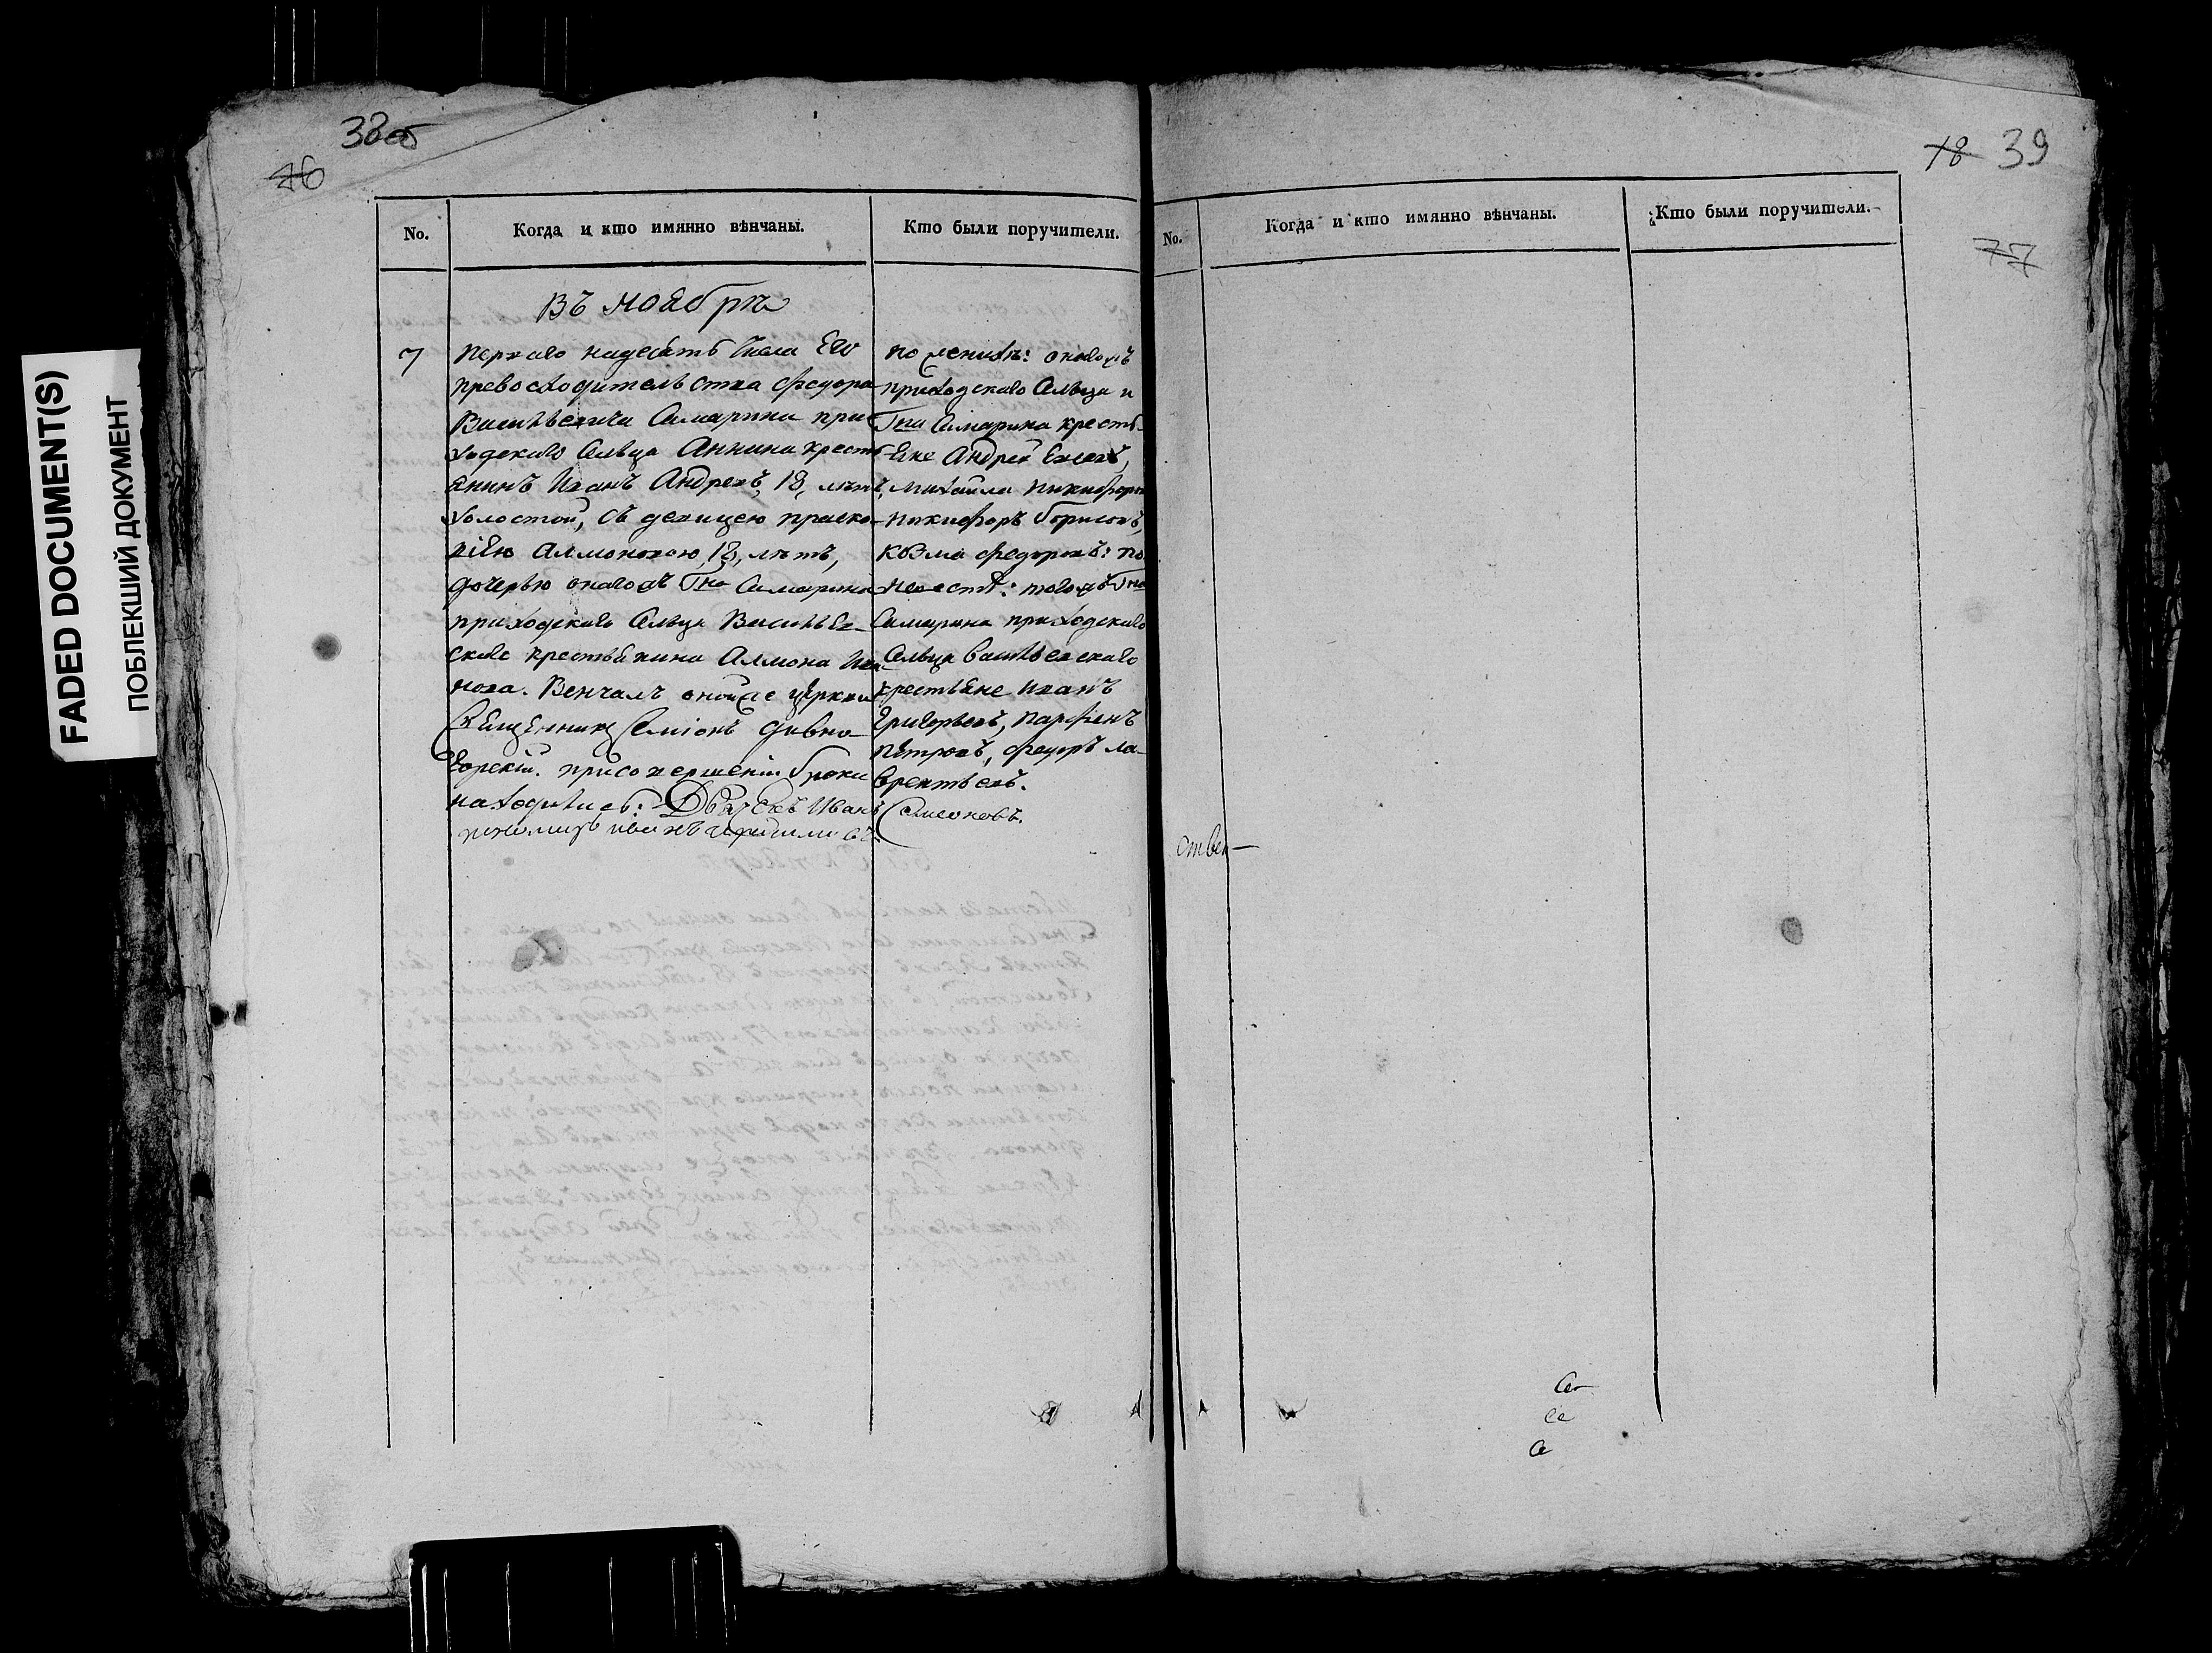 FADED DOCUMENT(S)
ПОБЛЕКШИЙ ДОКУМЕНТ
38об
76
No.
Когда и кто имянно вѣнчаны.
Кто были поручители.
Въ ноябрѣ
7
перваго надесять числа Его
превосходительства Федора
Васильевича Самарина при
ходскаго сельца Аннина кресть
янинъ Иванъ Андреевъ, 18, лѣтъ,
холостой, съ девицею праско
віею 18, лѣтъ,
дочерью онагожъ Гна Самарина
приходскаго сельца Васильев
скаго крестьянина Ива
нова. Венчалъ оной же церкви
Священникъ Симіонъ Дивно
горскій. при совершеніи брака
находились: Дьячекъ Иванъ
пономарь
по женихѣ: онагожъ
приходскаго сельца и
Гна Самарина кресть
яне Андрей
Михайла Никифоров
Никифоръ Борисовъ,
Козма Федоровъ: по
невестѣ: тогожъ Гна
Самарина приходскаго
сельца Васильевскаго
крестьяне Иванъ
Григорьевъ, Парфенъ
Петровъ, Федоръ Ла
врентьевъ.
Симеоновъ.
18 39
77
No.
Когда и кто имянно вѣнчаны.
Кто были поручители.